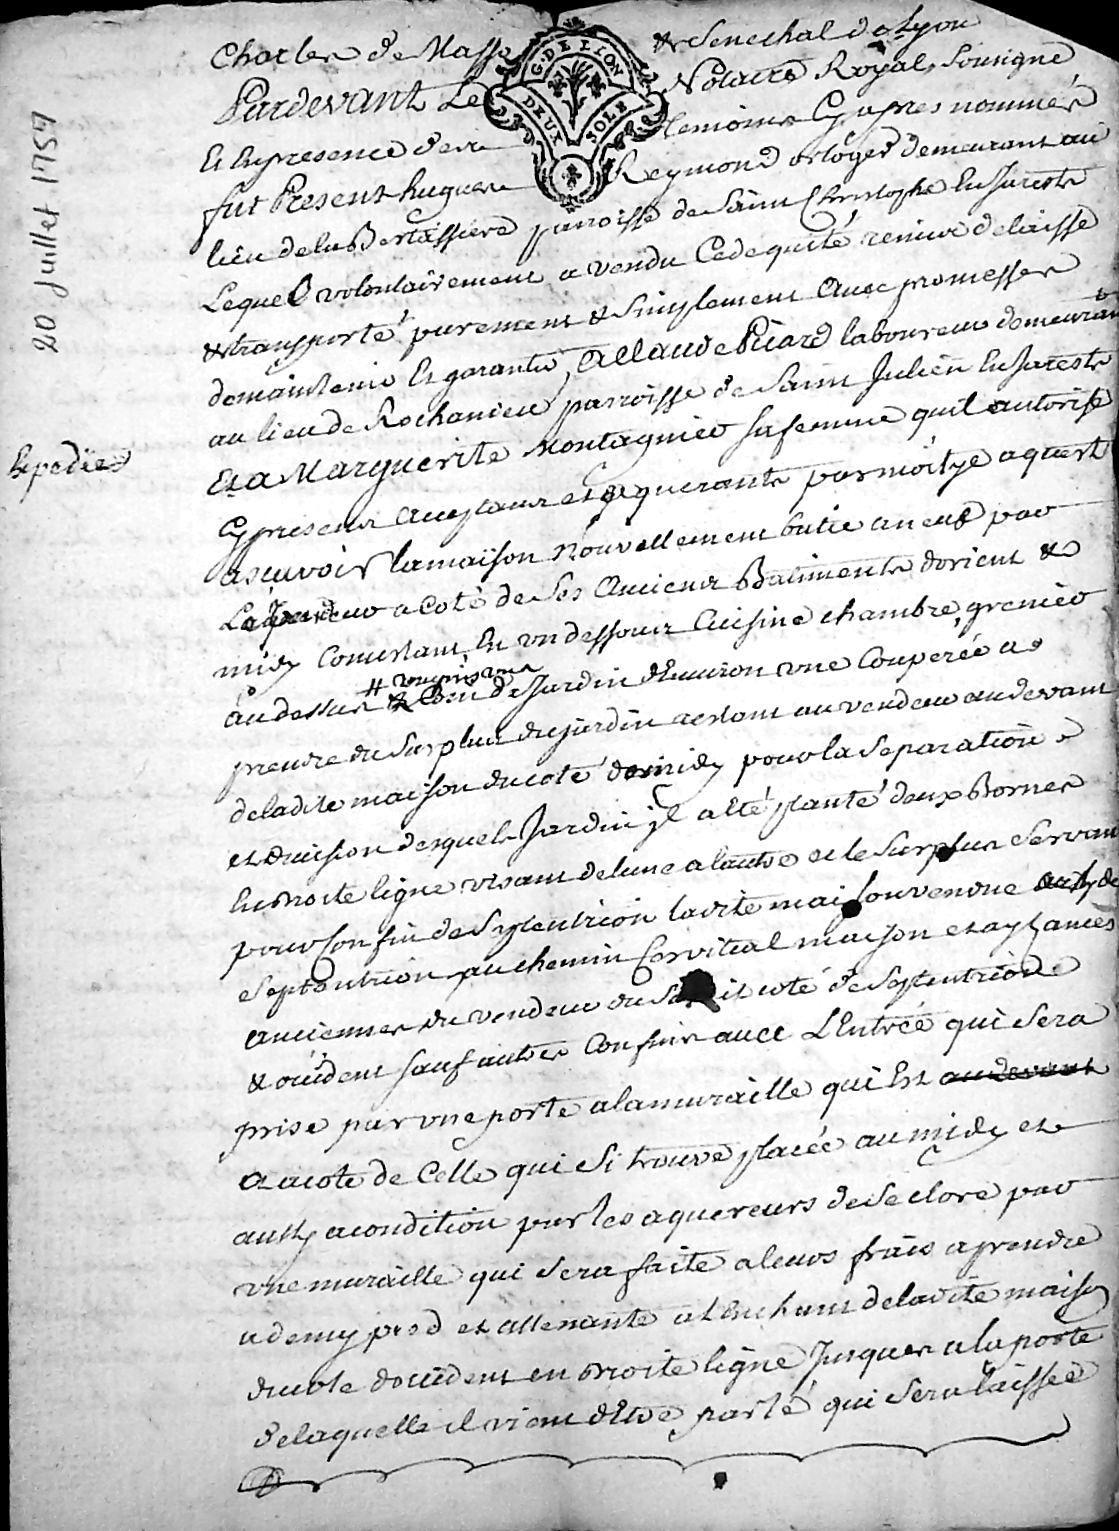 Charles de Masso & Senechal de Lyon
G. DE LION
DEUX SOLS
Pardevant Le Notaire Royal Sousigné
Et En presence des temoins Cy apres nommés
fut Present hugues Reymond orloger demeurant au
lieu de la Bertassiere parroisse de Saint Christophe En Jarests
Lequel volontairement a vendu Cede quité remué delaisse
& transporté purement & Simplement Avec promesses
de maintenir Et garantir, A Claude Picard laboureur demeurant
au lieu de Rochandieu parroisse de Saint Julien En Jarests
Et a Marguerite Montagnier sa femme quil autorise
Cy presents Aceptants et aquerants par moitye
ascavoir la maison nouvellement batie a neuf par
Le vendeur a coté de Ses Anciens Batiments dorient &
midy Consistant En un dessous Cuisine chambre, grenier
au dessus & de Jardin d'Environ une Couperée a
prendre du Surplus du jardin restant au vendeur au devant
de ladite maison du coté de midy pour la Separation
et division desquels Jardin il a eté planté deux Bornes
En droite ligne visant de lune a lautre et le Surplus Servant
pour Confin de Septentrion ladite maison vendue
Septentrion au chemin Corvitial maison et aysances
anciennes du vendeur du Sr dit coté de Septentrion
& occident sauf autres Confins avec L'Entrée qui Sera
prise par une porte a la muraille qui Est au devant
et a cote de Celle qui Si trouve placée au midy et
aussy a condition par les aquereurs de Se clore par
une muraille qui Sera faite a leurs frais a prendre
a demy pied et attenante a lenchant de ladite maison
du cote doccident en droite ligne Jusques a la porte
de laquelle il vient d'Etre parlé qui Sera laissée
20 Juillet 1757
Expedié